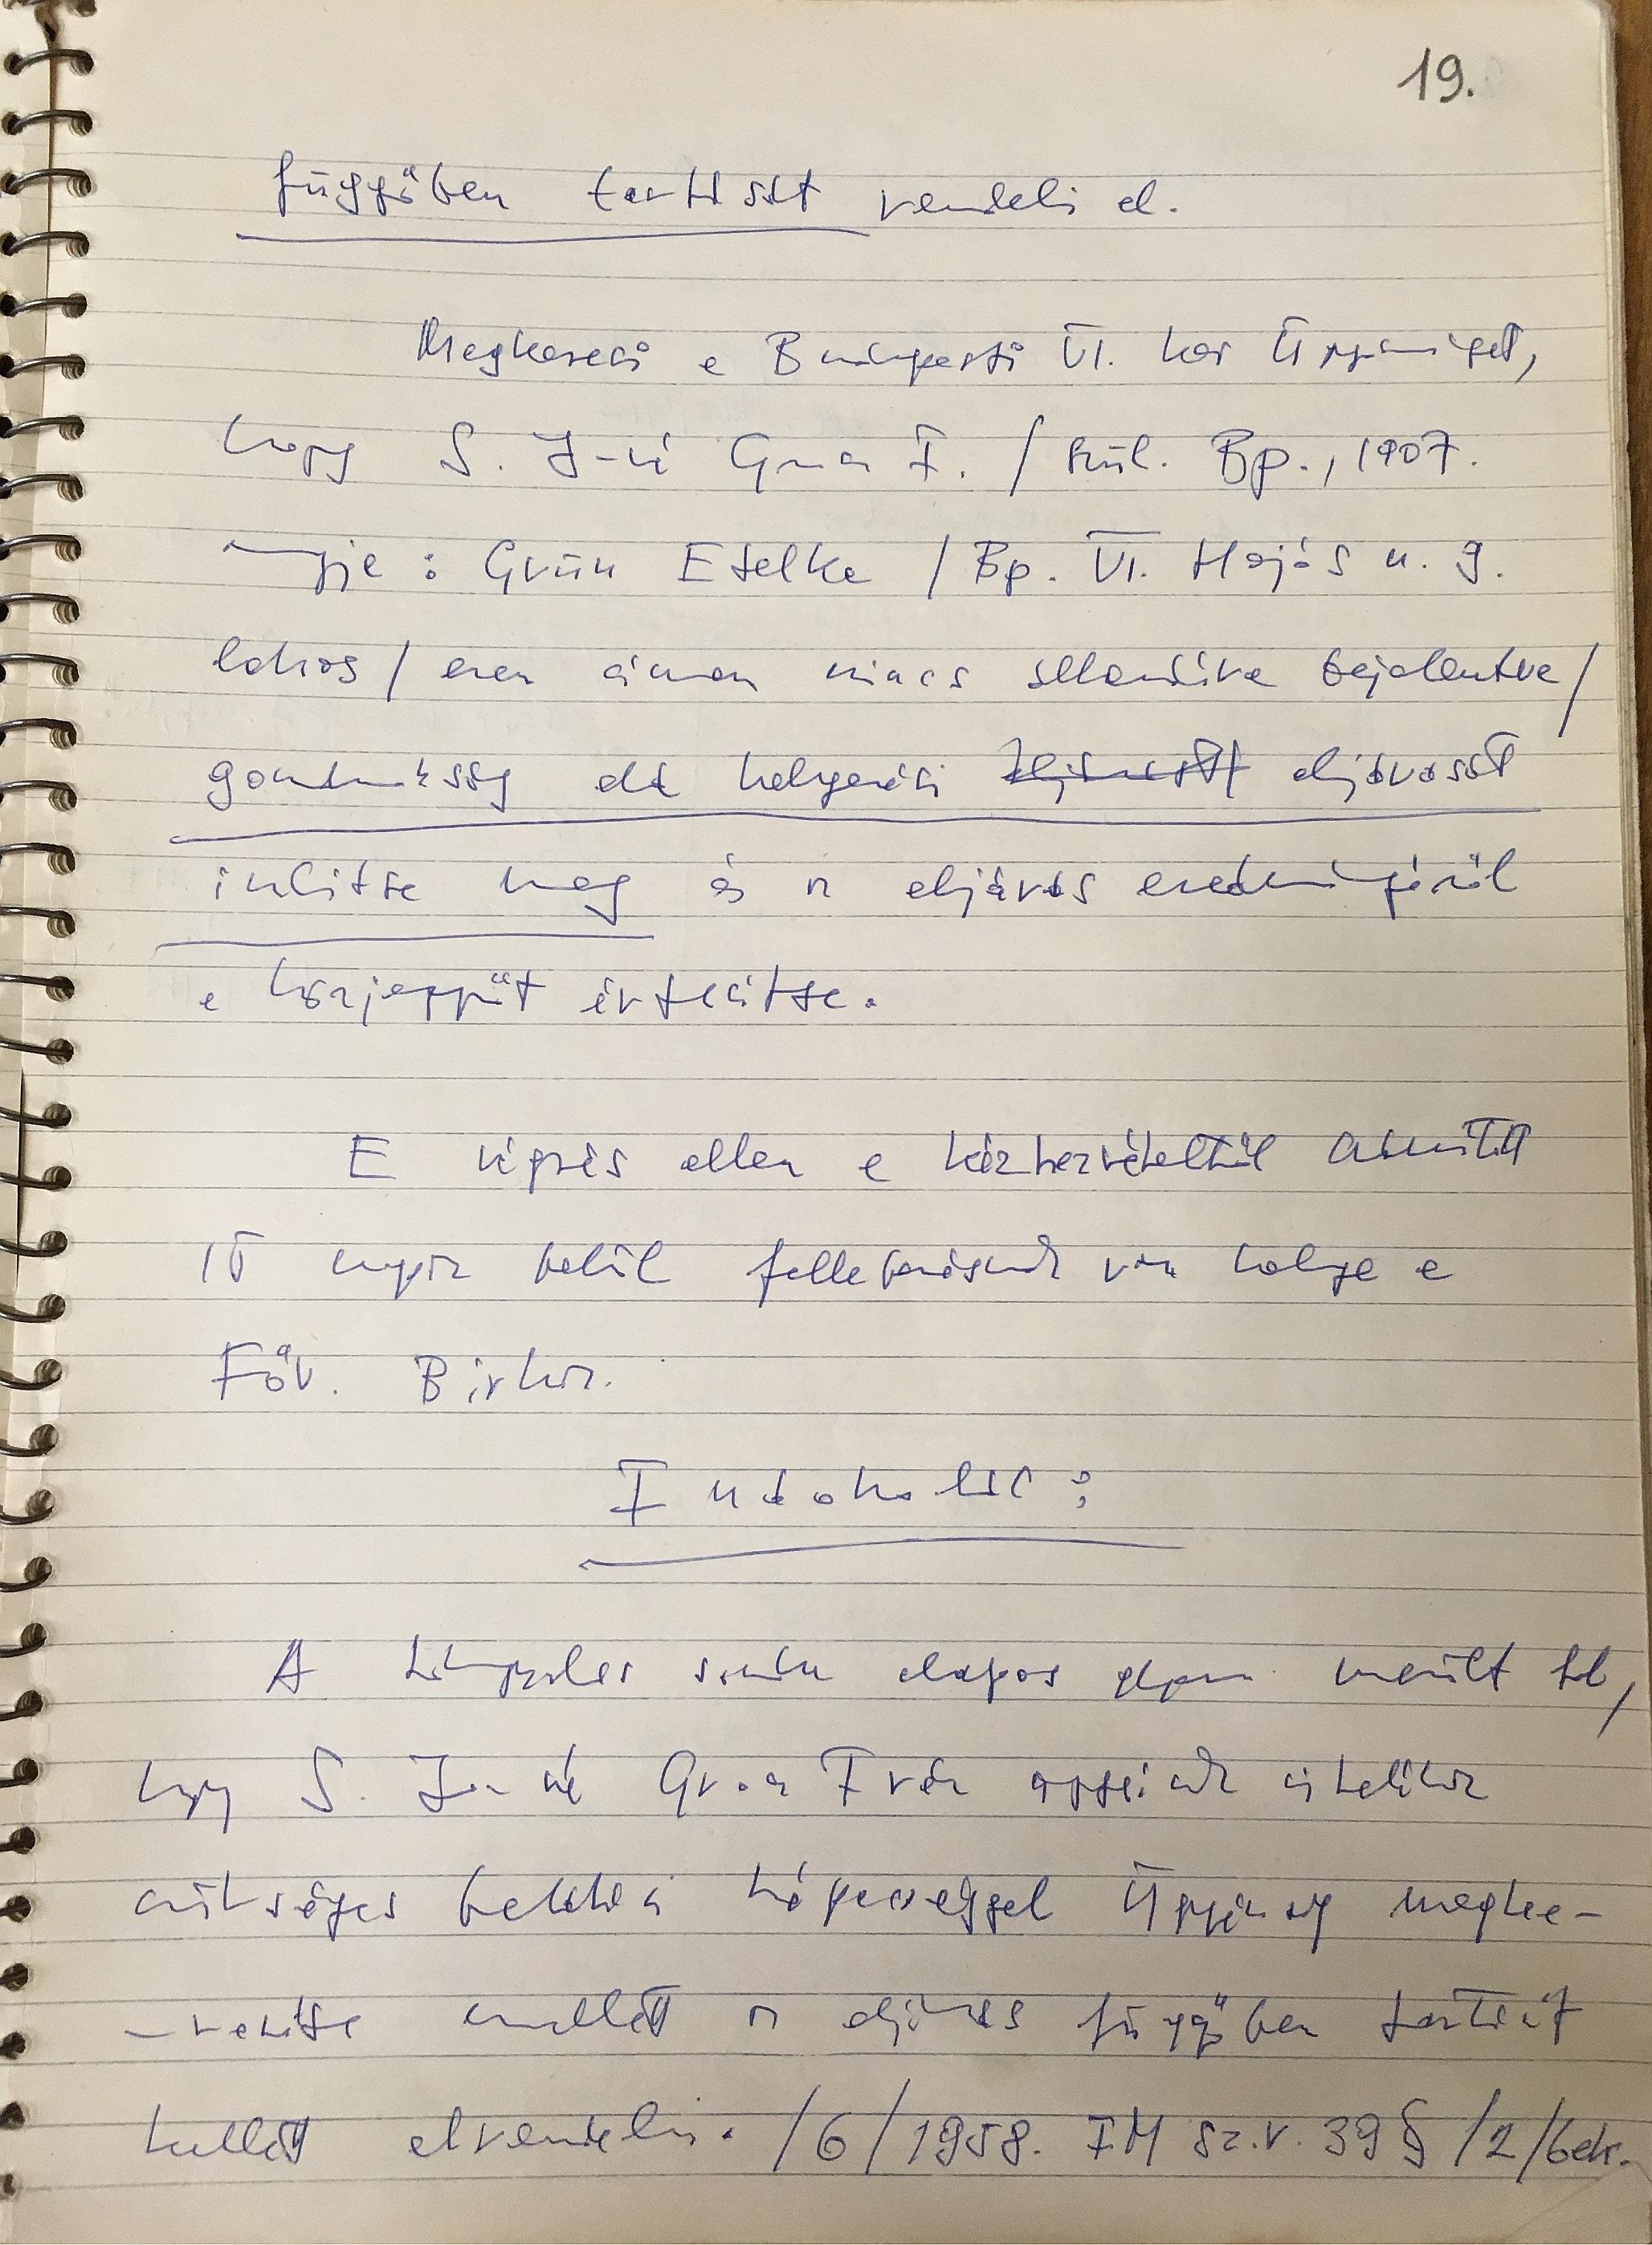 19.
függőben tartását rendeli el.
Megkeresi a Budapesti VI. ker Ügyészséget,
hogy S. J-né Gman I. / szül. Bp., 1907.
anyja : Grün Etelke / Bp. VI. Hajós u. 9.
lakos / ezen címen nincs állandóra bejelentve /
gondnokság alá helyezési eljárást
indítsa meg és az eljárás eredményéről
a közjegyzőt értesítse.
E végzés ellen a kézhezvételtől számított
15 napon belül fellebbezésnek van helye a
Föv. Birhoz.
Indokolás :
A tárgyalás során alapos gyanu merült fel,
hogy S. J-né örökösnek ítéletéhez
szükséges belátási képességgel Ügyészség megke-
resése mellett az eljárás függőben tartását
kellett elrendelni. /6/1958. IM sz.r. 39 § /2/ bek.